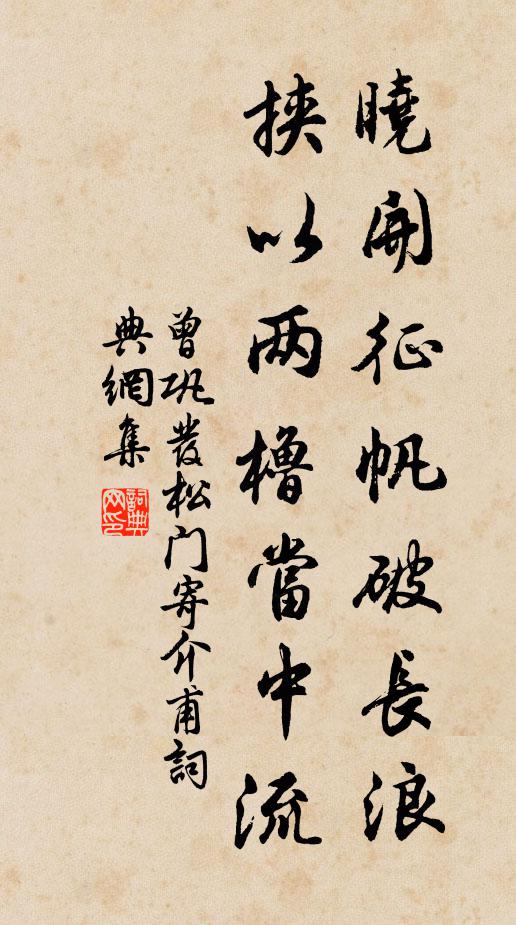 曉開征帆破長浪
挾以两櫓當中流
曾巩發松门寄介甫詞
典網集
詞典网印